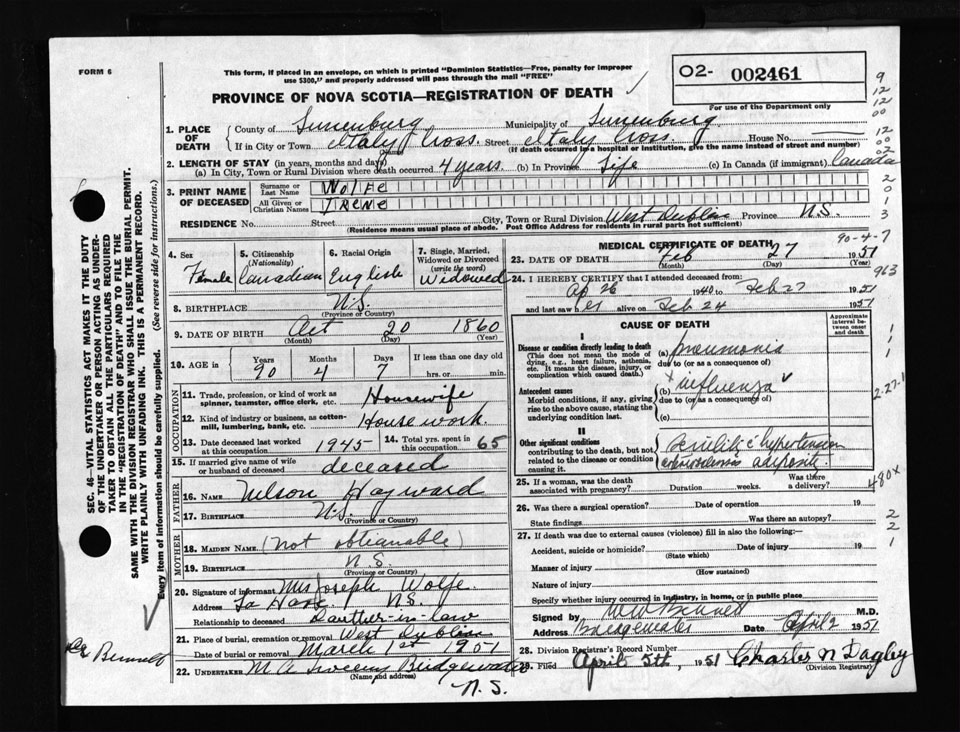 FORM 6
This form, if placed in an envelope, on which is printed "Dominion Statistics—Free, penalty for improper
use $300," and properly addressed will pass through the mail "FREE"
O2- 002461
For use of the Department only
PROVINCE OF NOVA SCOTIA—REGISTRATION OF DEATH
1. PLACE OF DEATH
County of Lunenburg Municipality of Lunenburg
If in City or Town Italy Cross. Street Italy Cross. House No.
(If death occurred in a hospital or institution, give the name instead of street and number)
2. LENGTH OF STAY (in years, months and days)
(a) In City, Town or Rural Division where death occurred 4 years (b) In Province Life (c) In Canada (if immigrant) Canada
3. PRINT NAME OF DECEASED
Surname or Last Name Wolfe
All Given or Christian Names Irene
RESIDENCE No. Street City, Town or Rural Division West Dublin Province N.S.
(Residence means usual place of abode. Post Office Address for residents in rural parts not sufficient)
4. Sex Female
5. Citizenship (Nationality) Canadian
6. Racial Origin English
7. Single, Married, Widowed or Divorced (write the word) Widowed
8. BIRTHPLACE N.S.
(Province or Country)
9. DATE OF BIRTH Oct 20 1860
(Month) (Day) (Year)
10. AGE Years 90 Months 4 Days 7 If less than one day old
hrs. or min.
OCCUPATION
11. Trade, profession, or kind of work as spinner, teamster, office clerk, etc. Housewife
12. Kind of industry or business, as cotton-mill, lumbering, bank, etc. House work.
13. Date deceased last worked at this occupation 1945 14. Total yrs. spent in this occupation 65
15. If married give name of wife or husband of deceased deceased
FATHER
16. NAME Nelson Hayward
17. BIRTHPLACE N.S.
(Province or Country)
MOTHER
18. MAIDEN NAME (not obtianable)
19. BIRTHPLACE N.S.
(Province or Country)
20. Signature of informant Mrs Joseph Wolfe.
Address La Have. N.S.
Relationship to deceased Dauther-in-law
21. Place of burial, cremation or removal West Dublin
Date of burial or removal March 1st 1951
22. UNDERTAKER M. A. Sweeny Bridgewater
(Name and address)
N.S.
MEDICAL CERTIFICATE OF DEATH
90-4-7
23. DATE OF DEATH Feb 27 1951
(Month) (Day) (Year)
24. I HEREBY CERTIFY that I attended deceased from:
Ap 26 1940 to Feb 27 1951
and last saw h er alive on Feb 24 1951
CAUSE OF DEATH
Approximate interval between onset and death
I
Disease or condition directly leading to death
(This does not mean the mode of dying, e.g., heart failure, asthenia, etc. It means the disease, injury, or complication which caused death.)
(a) pneumonia
due to (or as a consequence of)
Antecedent causes
Morbid conditions, if any, giving rise to the above cause, stating the underlying condition last.
(b) influenza
due to (or as a consequence of)
(c)
II
Other significant conditions
contributing to the death, but not related to the disease or condition causing it.
senility c hypertension
adiposity
25. If a woman, was the death associated with pregnancy? Duration weeks. Was there a delivery?
26. Was there a surgical operation? Date of operation 19
State findings Was there an autopsy?
27. If death was due to external causes (violence) fill in also the following:
Accident, suicide or homicide? Date of injury 19
(State which)
Manner of injury
(How sustained)
Nature of injury
Specify whether injury occurred in industry, in home, or in public place
Signed by W W Bennett M.D.
Address Bridgewater Date April 2 1951
28. Division Registrar's Record Number
29. Filed April 5th, 1951 Charles N Dagley
(Division Registrar)
SEC. 46—VITAL STATISTICS ACT MAKES IT THE DUTY
OF THE UNDERTAKER OR PERSON ACTING AS UNDER-
TAKER TO OBTAIN ALL THE PARTICULARS REQUIRED
IN THE "REGISTRATION OF DEATH" AND TO FILE THE
SAME WITH THE DIVISION REGISTRAR WHO SHALL ISSUE THE BURIAL PERMIT.
WRITE PLAINLY WITH UNFADING INK. THIS IS A PERMANENT RECORD.
Every item of information should be carefully supplied. (See reverse side for instructions.)
Dr Bennett
9
12
12
00
12
00
02
2
0
1
3
963
1
1
1
2-27-1
480X
2
2
1